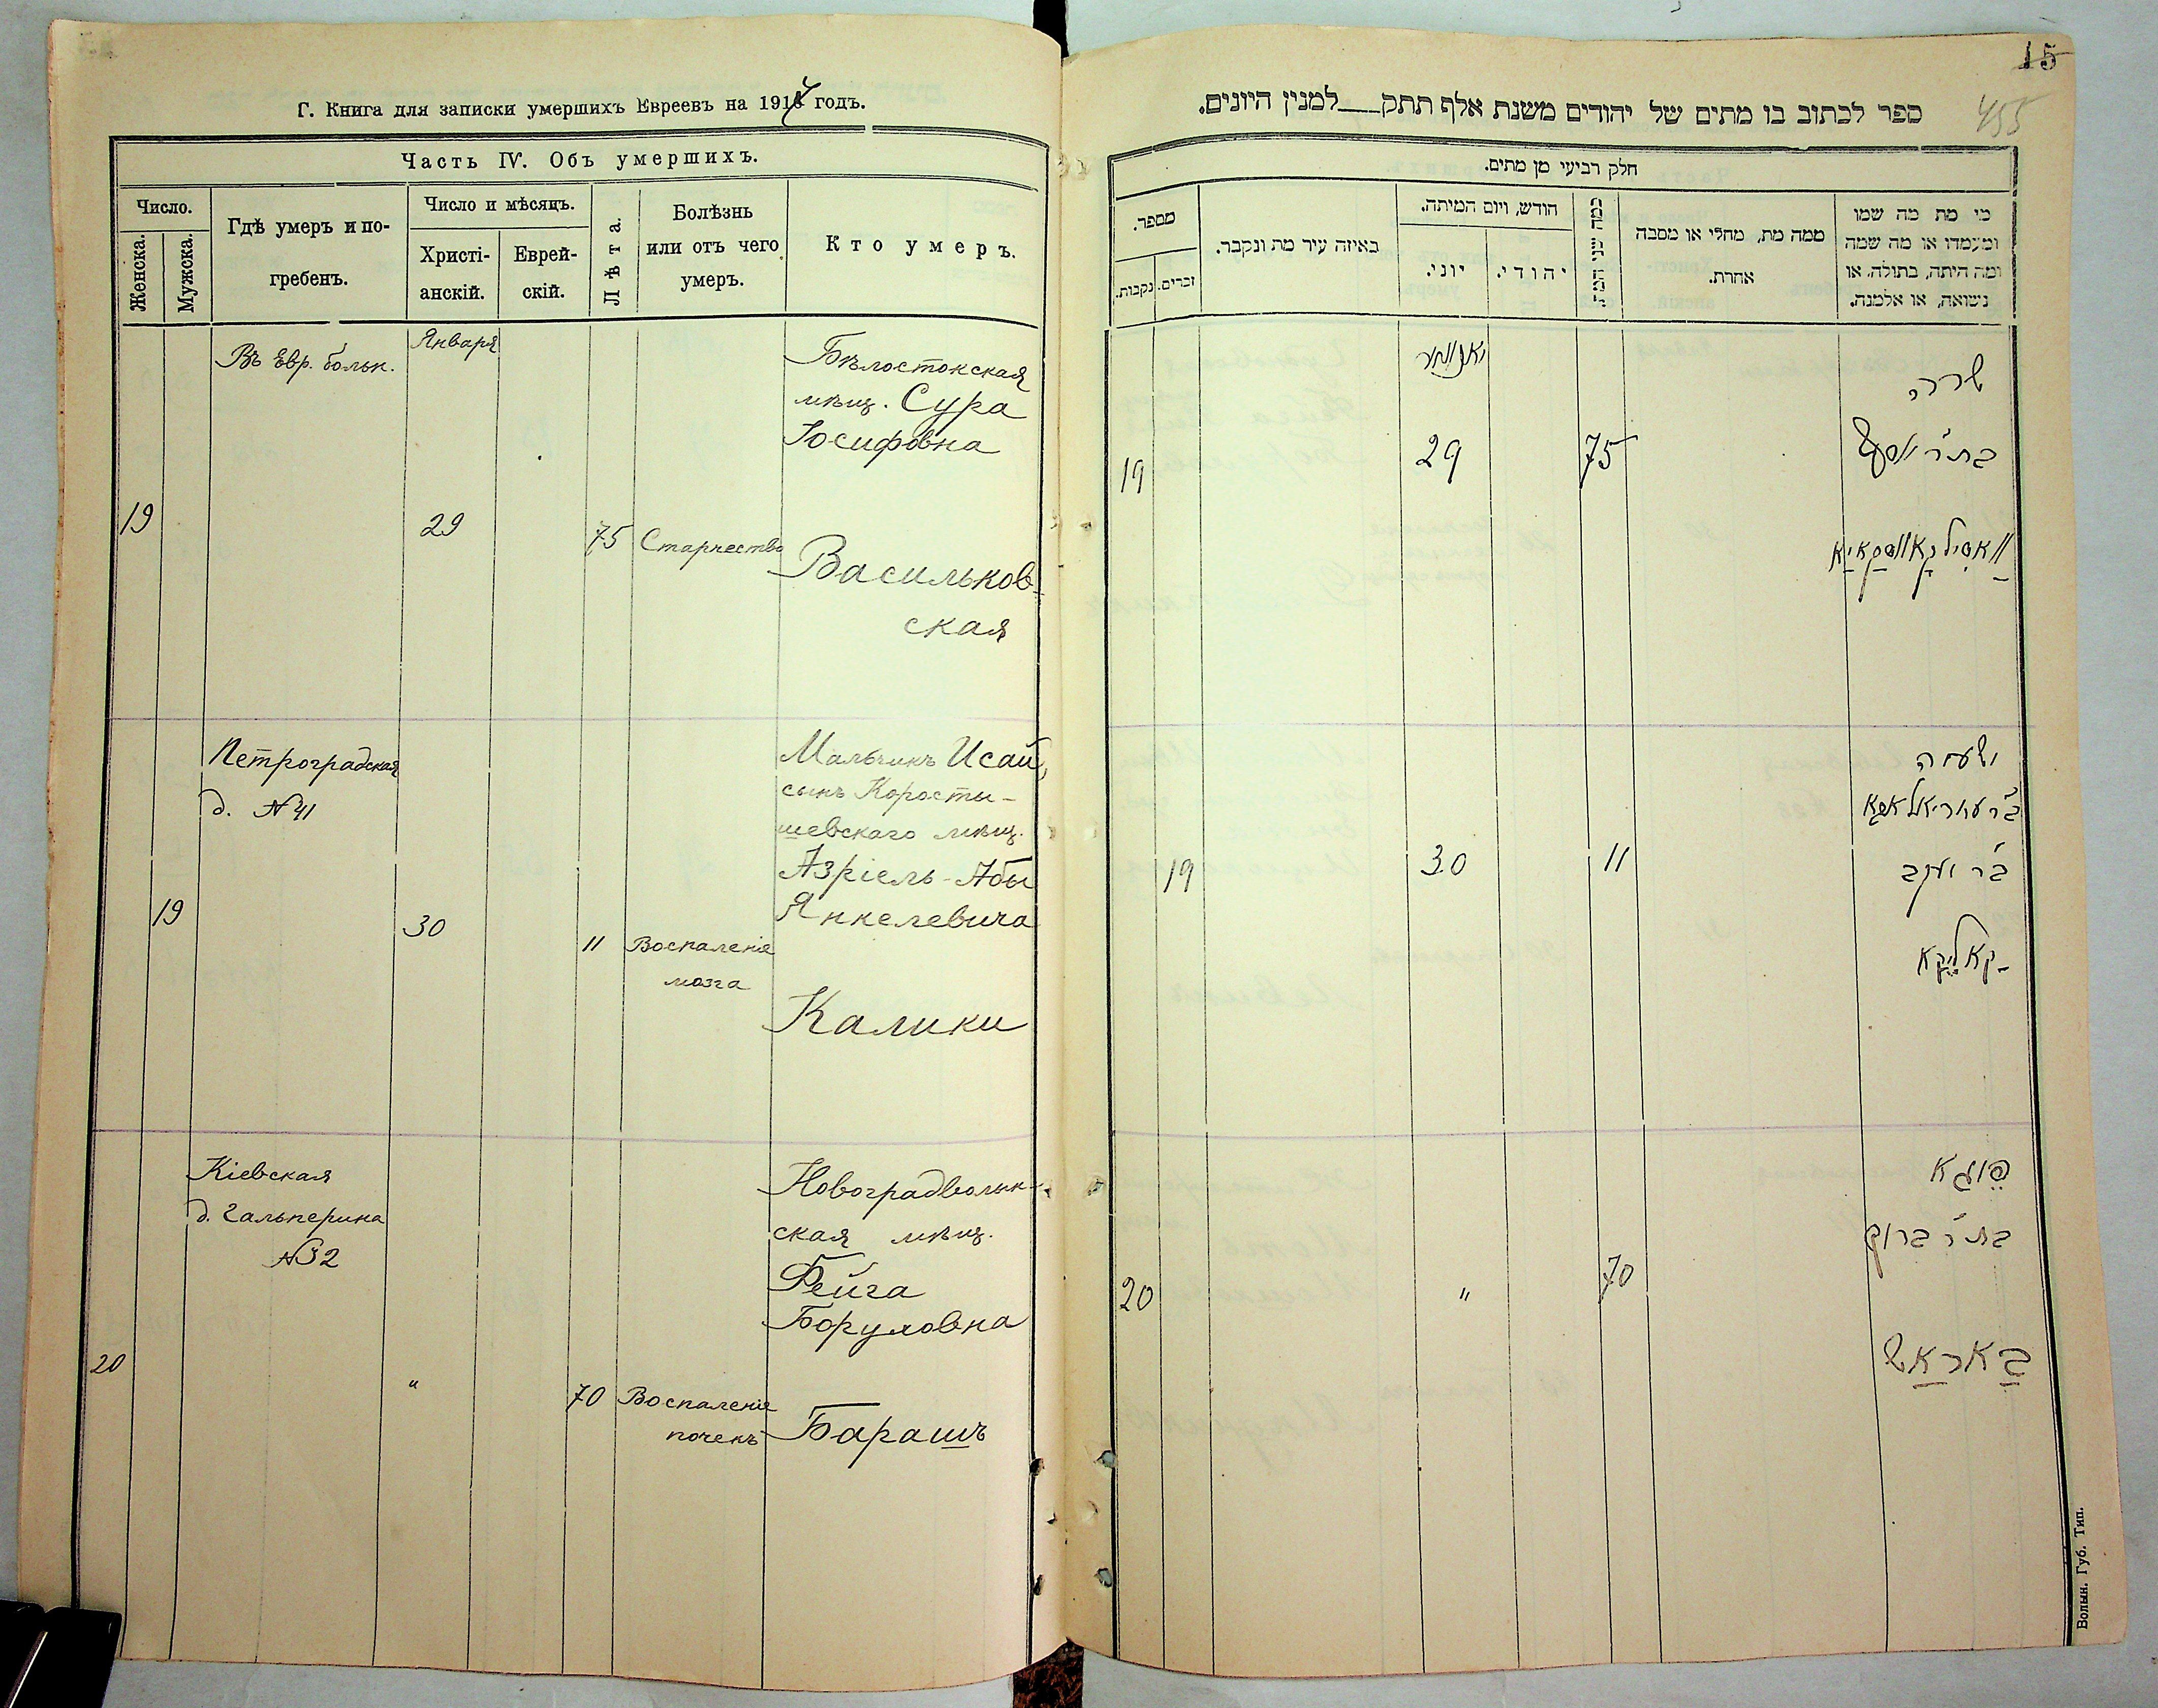 Г. Книга для записки умершихъ Евреевъ на 1917 годъ.
Часть IV. Объ умершихъ.
Число.
Женска.
Мужска.
Гдѣ умеръ и по-
гребенъ.
Число и мѣсяцъ.
Христі-
анскій.
Еврей-
скій.
Лѣта.
Болѣзнь
или отъ чего
умеръ.
Кто умеръ.
Января
Въ Евр. больн.
Бѣлостокская
мѣщ. Сура
Іосифовна
19
29
75
Старчество
Васильков-
ская
Петроградская
д. №41
Мальчикъ Исай,
сынъ Коросты-
шевскаго мѣщ.
Азріель-Абы
Янкелевича
19
30
11
Воспаленіе
мозга
Калики
Кіевская
д. Гальперина
№32
Новоградволын-
ская мѣщ.
Фейга
Боруховна
20
"
70
Воспаленіе
почекъ
Барашъ
15
455
ספר לכתוב בו מתים של יהודים משנת אלף תתק___למנין היונים.
חלק רביעי מן מתים.
מספר.
נקבות.
זכרים.
באיזה עיר מת ונקבר.
חודש, ויום המיתה.
יוני.
יהודי.
כמה שני המת
ממה מת, מחלי או מסבה
אחרת.
מי מת מה שמו
ומעמדו או מה שמה
ומה היתה, בתולה, או
נשואה, או אלמנה.
יאנוואר
שרה
בת ר' יוסף
19
29
75
וואסילקאווסקאיא
ישעיה
ב"ר עזריאל אבא
ב"ר יעקב
19
30
11
קאליקא
פייגא
בת ר' ברוך
20
"
70
באראש
Волын. Губ. Тип.